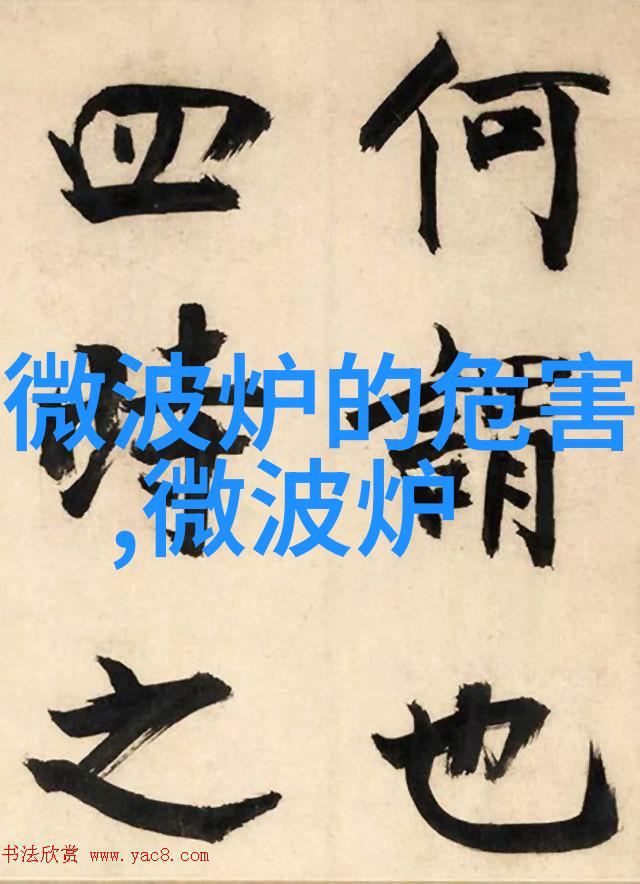 何謂也
四時之
微波炉的危害
,微波炉
书法欣赏 www.yac8.com